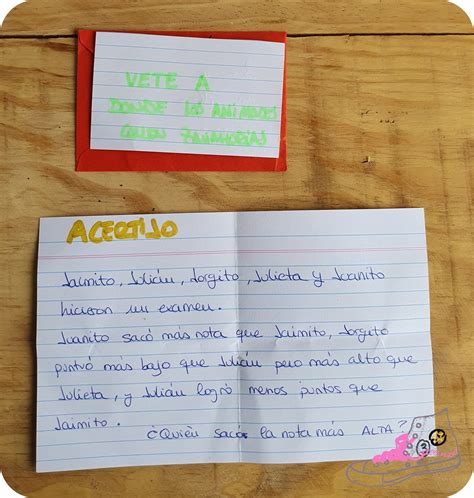 VETE A
DONDE LOS ANIMALES
COMEN ZANAHORIAS
ACERTIJO
Jaimito, Julián, Jorgito, Julieta y Juanito
hicieron un examen.
Juanito sacó más nota que Jaimito, Jorgito
puntuó más bajo que Julián pero más alto que
Julieta, y Julián logró menos puntos que
Jaimito.
¿Quién sacó la nota más ALTA?